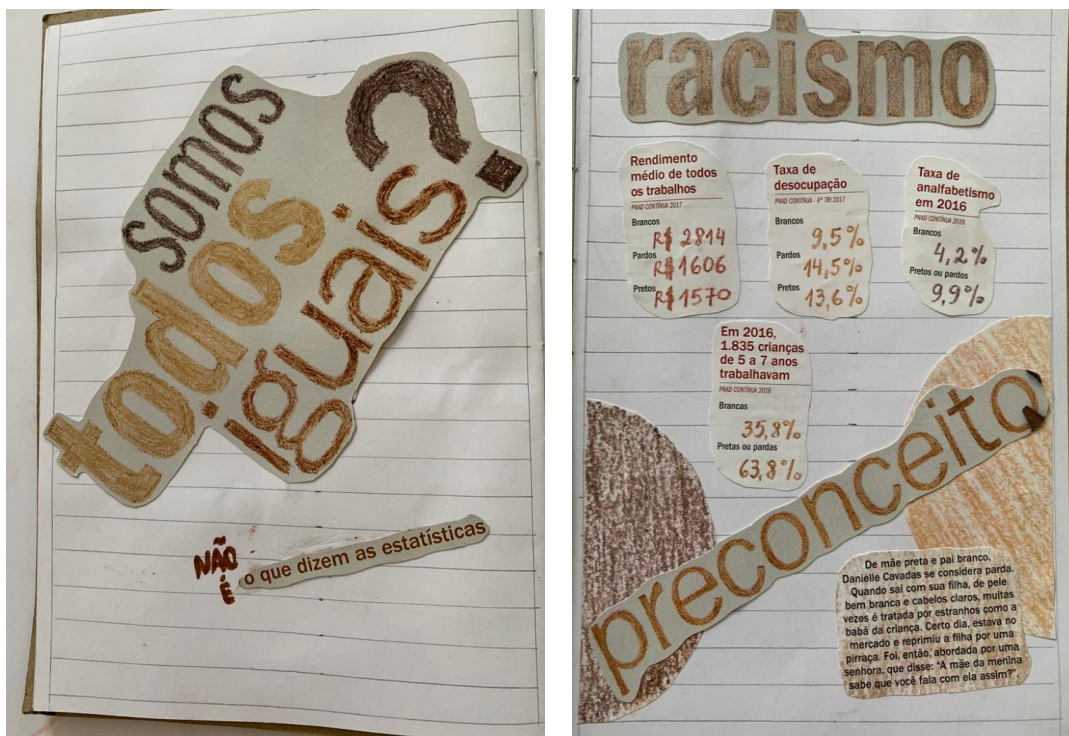 somos
todos
iguais?
NÃO
É
o que dizem as estatísticas
racismo
Rendimento
médio de todos
os trabalhos
PNAD CONTÍNUA 2017
Brancos
R$ 2814
Pardos
R$ 1606
Pretos
R$ 1570
Taxa de
desocupação
PNAD CONTÍNUA - 4º TRI 2017
Brancos
9,5%
Pardos
14,5%
Pretos
13,6%
Taxa de
analfabetismo
em 2016
PNAD CONTÍNUA 2016
Brancos
4,2%
Pretos ou pardos
9,9%
Em 2016,
1.835 crianças
de 5 a 7 anos
trabalhavam
PNAD CONTÍNUA 2016
Brancas
35,8%
Pretas ou pardas
63,8%
preconceito
De mãe preta e pai branco,
Danielle Cavadas se considera parda.
Quando sai com sua filha, de pele
bem branca e cabelos claros, muitas
vezes é tratada por estranhos como a
babá da criança. Certo dia, estava no
mercado e reprimiu a filha por uma
pirraça. Foi, então, abordada por uma
senhora, que disse: "A mãe da menina
sabe que você fala com ela assim?".